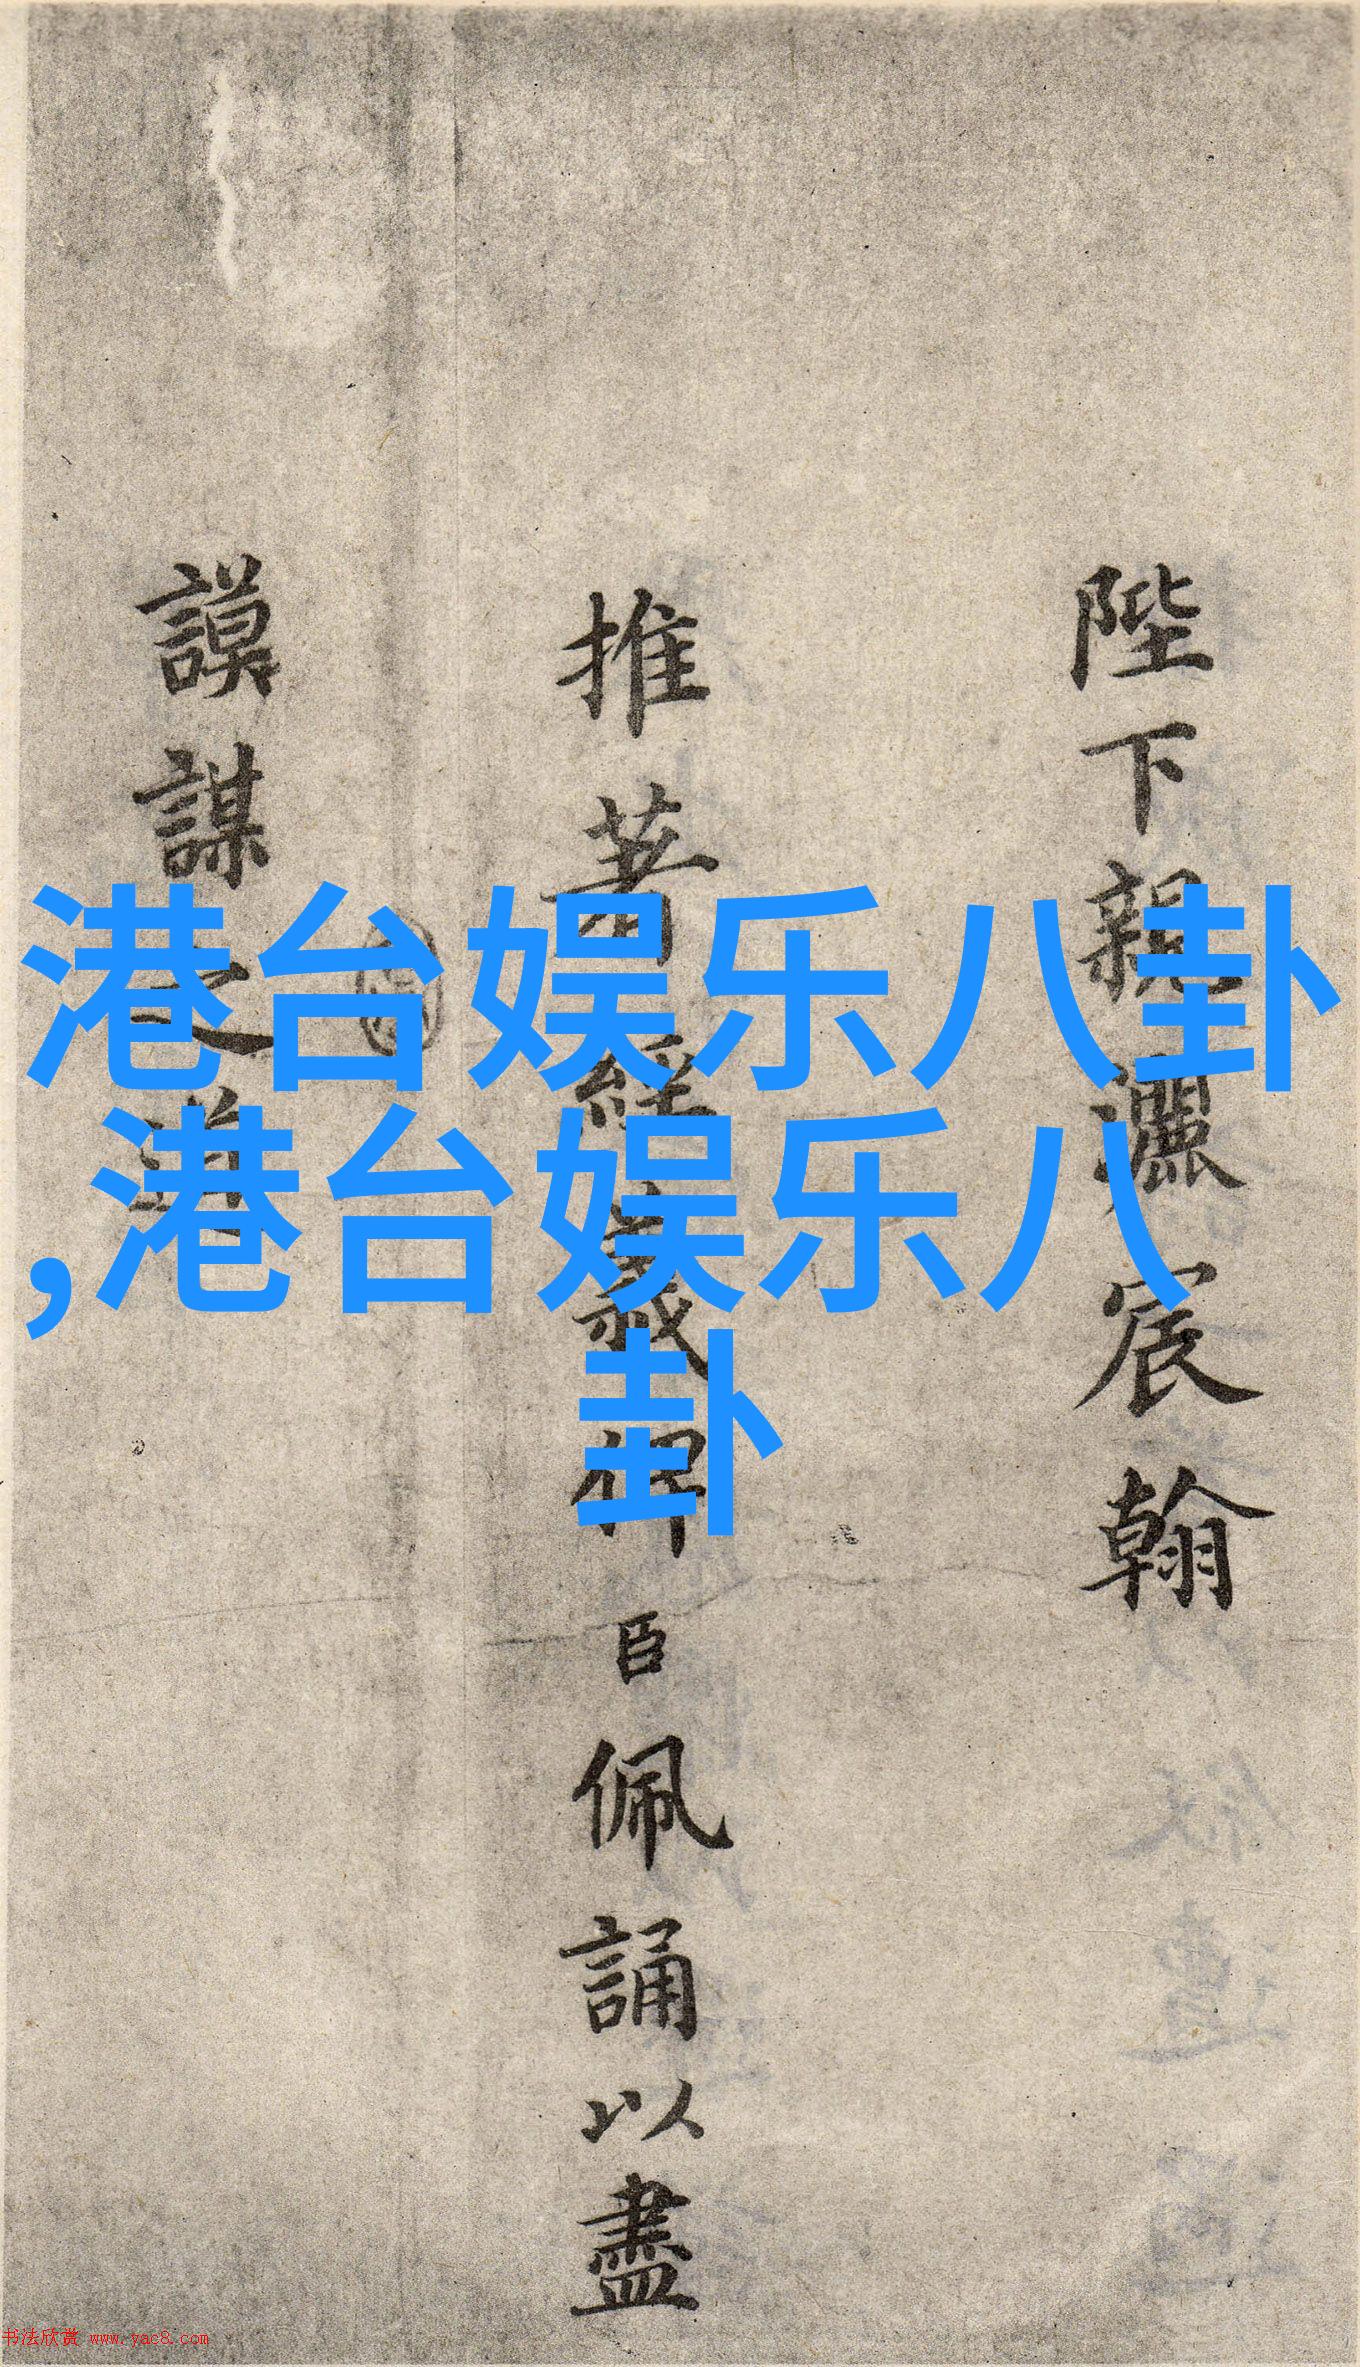 港台娱乐八卦
,港台娱乐八
卦
陛下親灑宸翰
推著經義俾臣佩誦以盡
謨謀之道
书法欣赏 www.yac8.com